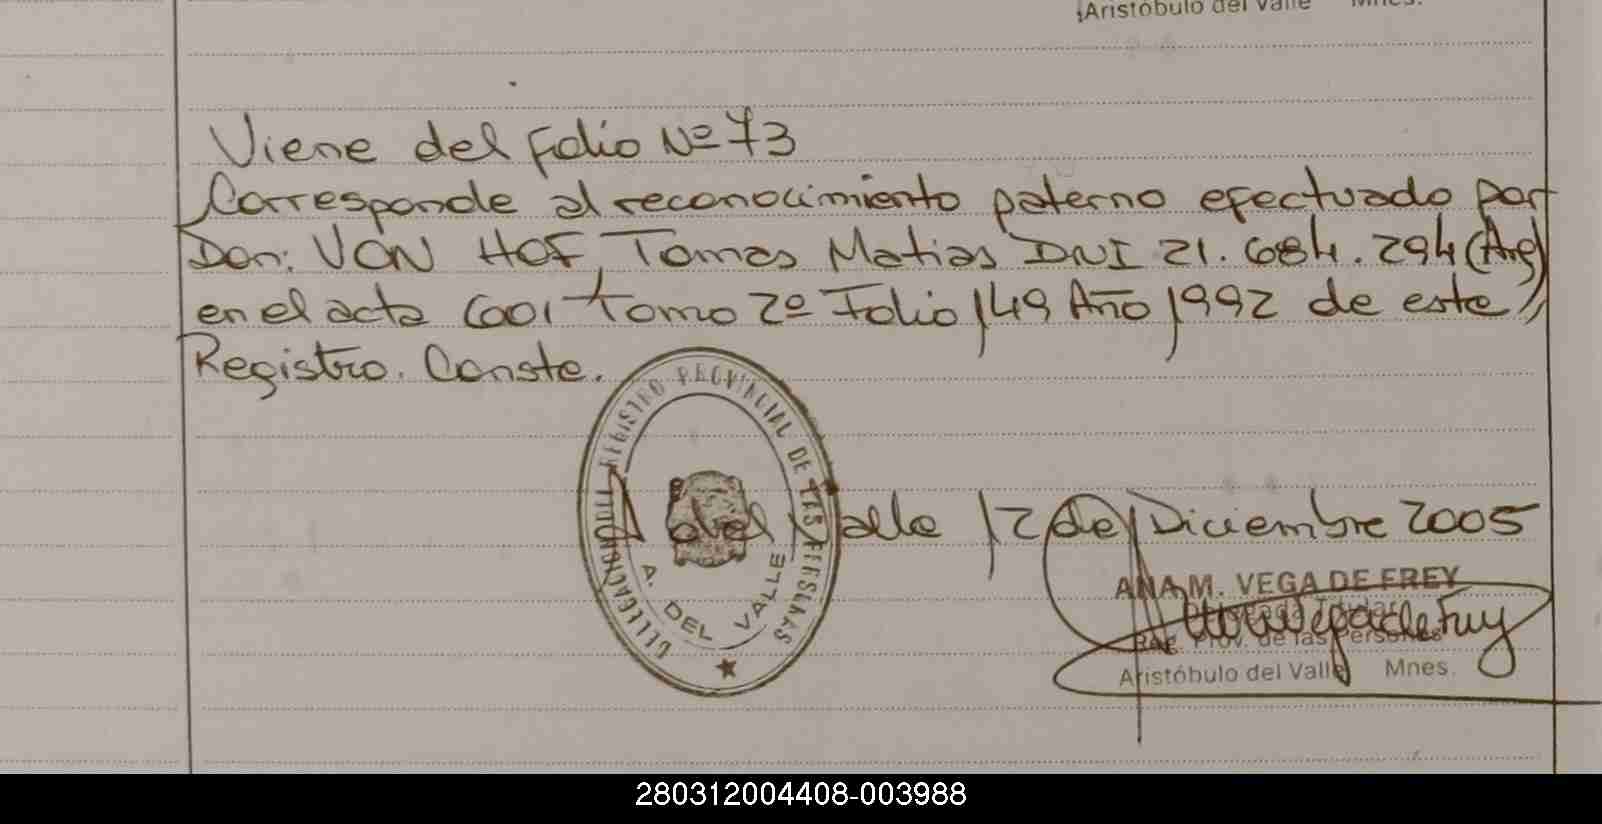 Aristóbulo del Valle Mnes.
Viene del Folio Nº 73
Corresponde al reconocimiento paterno efectuado por
Don: VON HOF, Tomas Matias DNI 21.684.294 (Arg)
en el acta 6001 Tomo 2º Folio 149 Año 1992 de este
Registro. Conste.
DELEGACION REGISTRO PROVINCIAL DE LAS PERSONAS
A. DEL VALLE
A del Valle 12 de Diciembre 2005
ANA M. VEGA DE FREY
Delegada Titular
Reg. Prov. de las Personas
Aristóbulo del Valle Mnes.
280312004408-003988